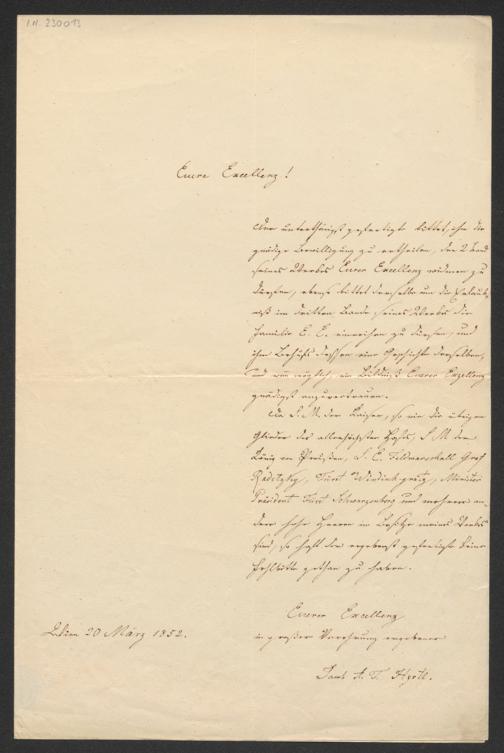 I.N. 230013
Eure Excellenz!
Der unterthänigst gefertigte bittet, ihm die
gnädige Bewilligung zu ertheilen, den 2 Band
seines Werkes Eurer Excellenz widmen zu
dürfen, ebenso bittet derselbe um die Erlaub-
niß im dritten Bande seines Werkes die
Familie E. E. einreihen zu dürfen, und
ihm Behufs dessen eine Geschichte derselben,
und wo möglich, ein Bildniß Eurer Exzellenz
gnädigst anzuvertrauen.
Da S. M. der Kaiser, so wie die übrigen
Glieder des allerhöchsten Hofes, S M der
König von Preußen, S. E. Feldmarschall Graf
Radetzky, Fürst Windischgrätz, Minister
Präsident Fürst Schwarzenberg und mehrere an-
dere hohe Herren im Besitze meines Werkes
sind, so hofft der ergebenst gefertigte keine
Fehlbitte gethan zu haben.
Eurer Excellenz
in großer Verehrung ergebener
Wien 20 März 1852.